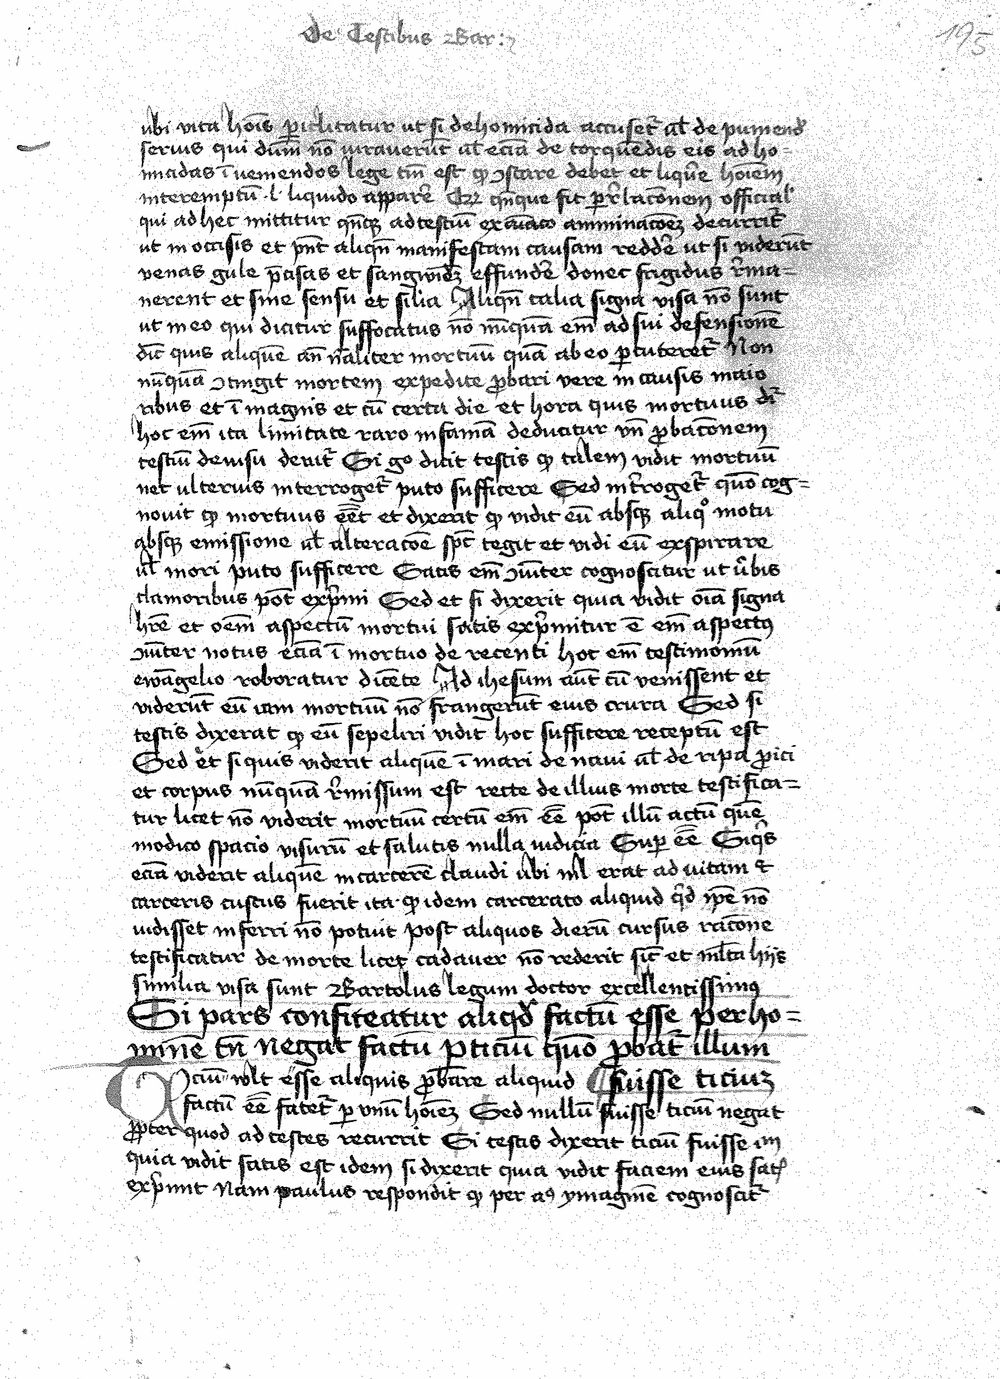 De Testibus Bar:
195
ubi vita hoīs periclitatur ut si de homicida accuset᷑ aut de puniend̕
servis qui dūm nō iuraverūt aut eciā de torquēdis eis ad ho=
micidas īveniendos lege tn̄ est qd ꝯstare debet et liquere hoīem
interemptū l liquido apparere fit officiał
qui ad hec mittitur ad testiū decurrit
ut in occisis et pn̄t aliqn̄ manifestam causam reddere ut si viderūt
venas gule p̄cisas et effundere donec frigidus r̄ma=
nerent et sine sensu et silia Aliqn̄ talia signa visa nō sunt
ut in eo qui dicitur suffocatus nō nūquā em̄ ad sui defensionē
dic̄ quis aliquē an nāliter mortuū quā ab eo ꝑcuteret᷑ Non
nūquā ꝯtingit mortem expedite ꝓbari vere in causis maio
ribus et ī magnis et cū certa die et hora quis mortuus dr̄
hoc em̄ ita limitate raro in famā deducitur vn̄ ꝓbacōnem
testiū de visu Si go dicit testis qd talem vidit mortuū
nec ulterius interroget᷑ puto sufficere Sed int̄roget᷑ quō cog=
novit qd mortuus eēt et dixerit qd vidit eū absqꝫ aliqo motu
absqꝫ emissione ul̄ alteracōe spc̄ tegit et vidi eū exspirare
ul̄ mori puto sufficere Satis em̄ ꝯmiter cognoscitur ut v̄bis
clamoribus pōt exp̄mi Sed et si dixerit quia vidit oīa signa
hr̄e et oēm aspectū mortui satis exp̄mitur ē em̄ aspectꝰ
ꝯmiter notus eciā ī mortuo de recenti hoc em̄ testimoniū
ewāgelio roboratur dicēte Ad ihesum aūt cū venissent et
viderūt eū iam mortuū nō frangerūt eius crura Sed si
testis dixerat qd eū sepeliri vidit hoc sufficere receptū est
Sed et si quis viderit aliquē ī mari de navi aut de ripa ꝓici
et corpus nūquā r̄missum est recte de illius morte testifica=
tur licet nō viderit mortuū certū em̄ eē pōt illū actū quē
modico spacio visurū et salutis nulla iudicia Suꝑ eē Siqis
eciā viderit aliquē in carcerē claudi ubi nil erat ad vitam et
carceris custus fuerit ita qd idem carcerato aliquid qd ipē nō
vidisset inferri nō potuit post aliquos dierū cursus racōne
testificatur de morte licet cadaver nō rederit sic̄ et ml̄ta hijs
similia visa sunt Bartolus legum doctor excellentissimꝰ
Si pars confiteatur aliqd̕ factū esse per ho=
minē tn̄ negat factū ꝑ ticiū quō ꝓbat᷑ illum
Ticiū wlt esse aliquis ꝓbare aliquid fuisse ticiuꝫ
factū eē fatet᷑ ꝑ vnū hoīeꝫ Sed nullū fuisse ticiū negat
ꝓpter quod ad testes recurrit Si testis dixerit ticiū fuisse im
quia vidit satis est idem si dixerit quia vidit faciem eius sat̕
exp̄mit Nam paulus respondit qd per ymaginē cognoscit᷑